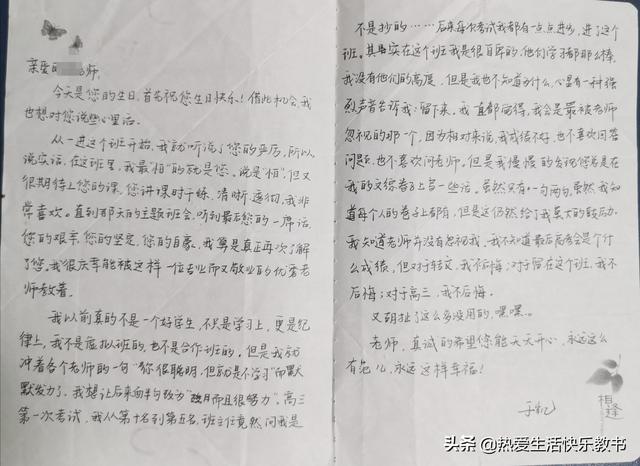 亲爱的老师,
今天是您的生日,首先祝您生日快乐!借此机会我
也想对您说些心里话。
从一进这个班开始,我就听说了您的严厉,所以
说实话,在这班里,我最“怕”的就是您。说是“怕”,但又
很期待上您的课,您讲课时干练、清晰、透彻,我非
常喜欢。直到那天的主题班会,听到最后您的一席话,
您的艰辛,您的坚定,您的自豪,我算是真正再次了解
了您,我很庆幸能被这样一位专业而又敬业的优秀老
师教着。
我以前真的不是一个好学生,不只是学习上,更是纪
律上,我不是虚拟班的,也不是合作班的,但是我就
冲着各个老师的一句“你很聪明,但就是不学习”而默
默发力了,我想让后来向半句改为“而且很努力”。高三
第一次考试,我从第十名到第五名,班主任竟然问我是
不是抄的……后来每次考试我都有一点点进步,进了这个
班。其实在这个班我是很自卑的,他们学习都那么棒,
我没有他们的高度,但是我也不知道为什么,心里有一种强
烈声音告诉我:留下来,我一直都觉得,我会是最被老师
忽视的那一个,因为相对来说,我成绩不好,也不喜欢回答
问题,也不喜欢问老师。但是我慢慢的发现您总是在
我的文综卷子上写一些话,虽然只有一句两句,虽然我知
道每个人的卷子上都有,但是这仍然给了我莫大的鼓励,
我知道老师并没有忽视我,我不知道最后高考会是个什
么成绩,但对于转文,我不后悔;对于留在这个班,我不
后悔;对于高三,我不后悔。
又胡扯了这么多没用的,嘿嘿。
老师,真诚的希望您能天天开心,永远这么
有范儿,永远这样幸福!
相逢
头条 @热爱生活快乐教书